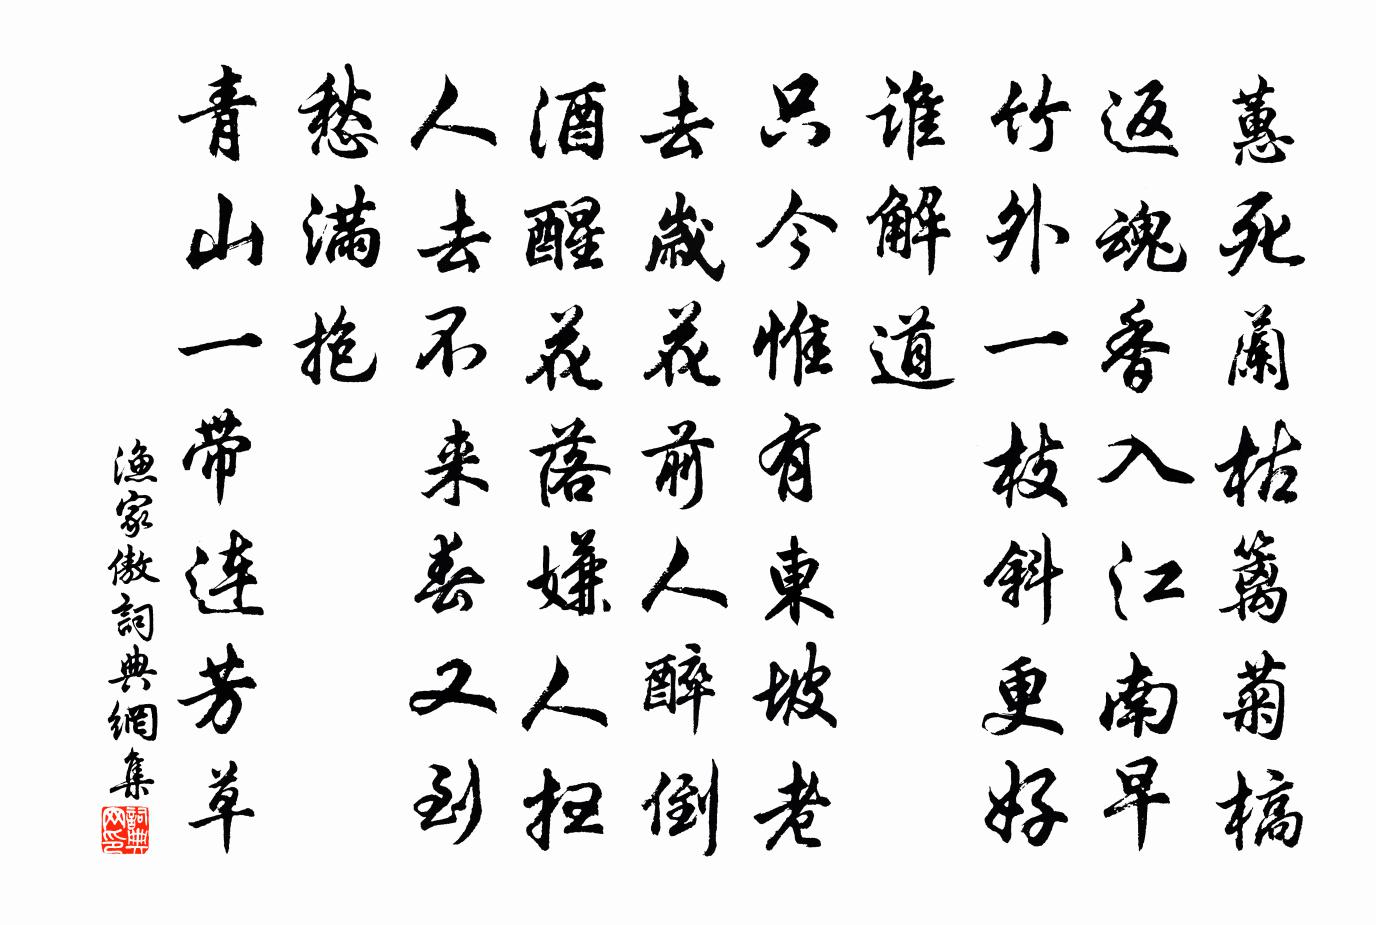 蕙死蘭枯籬菊槁
返魂香入江南早
竹外一枝斜更好
谁解道
只今惟有東坡老
去歲花前人醉倒
酒醒花落嫌人扫
人去不来春又到
愁满抱
青山一带连芳草
漁家傲詞典網集
詞典网印